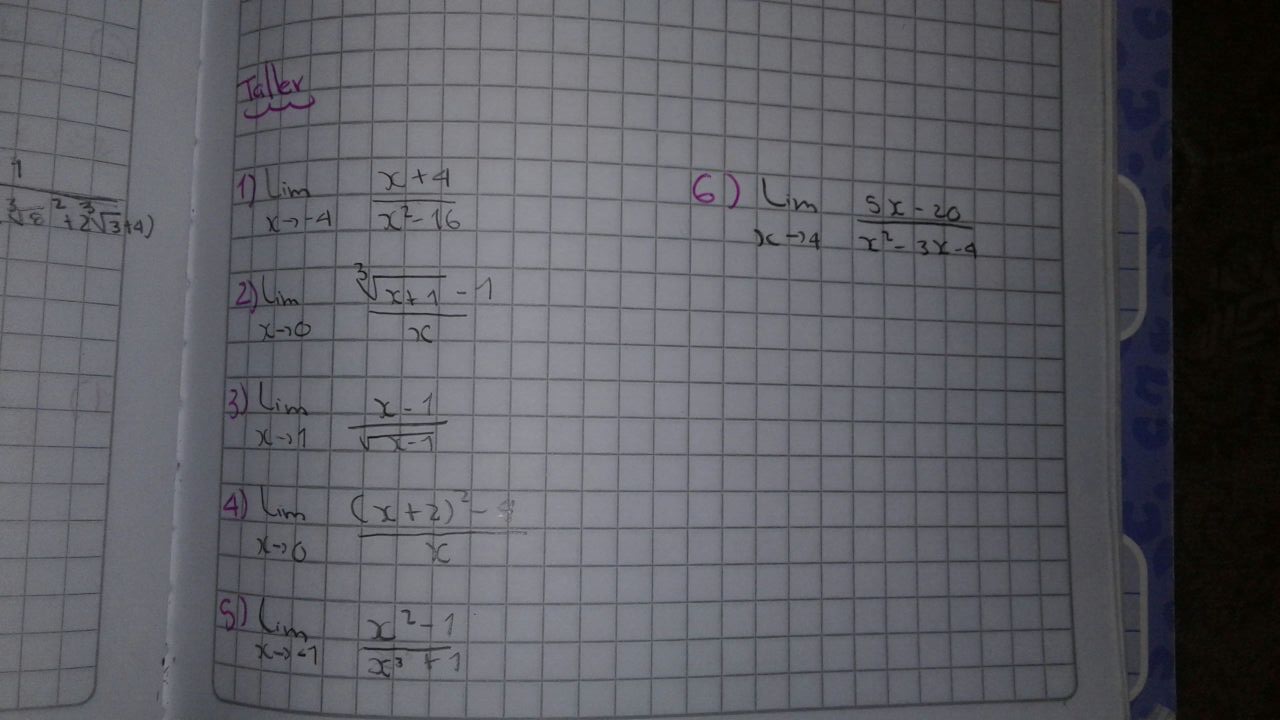 Taller
1) Lim x→-4 (x+4)/(x²-16)
2) Lim x→0 (∛(x+1) - 1)/x
3) Lim x→1 (x-1)/√(x-1)
4) Lim x→0 ((x+2)² -)/x
5) Lim x→-1 (x²-1)/(x³+1)
6) Lim x→4 (5x-20)/(x²-3x-4)